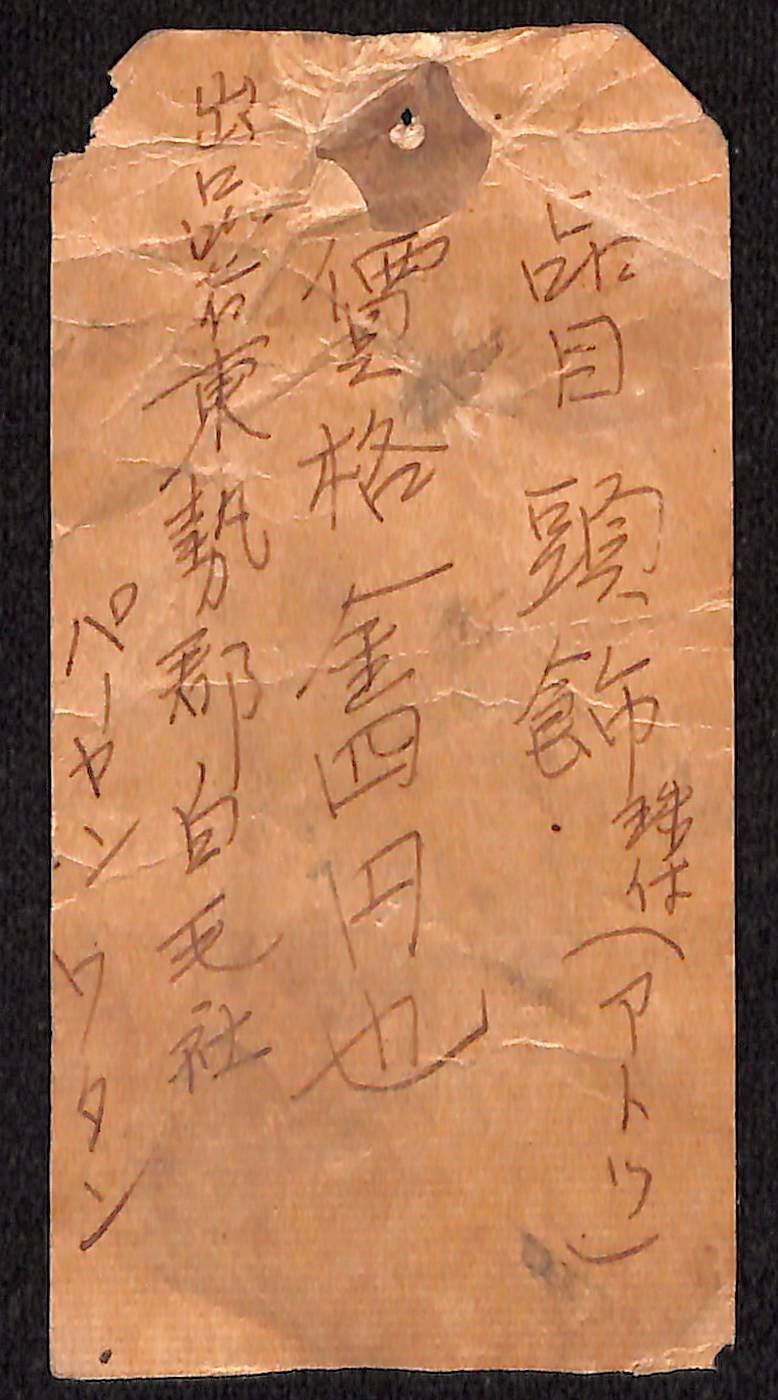 品目 頭飾 珠付(アトク)
價格 金四円也
出品者 東勢郡白毛社
パーヤンワタン